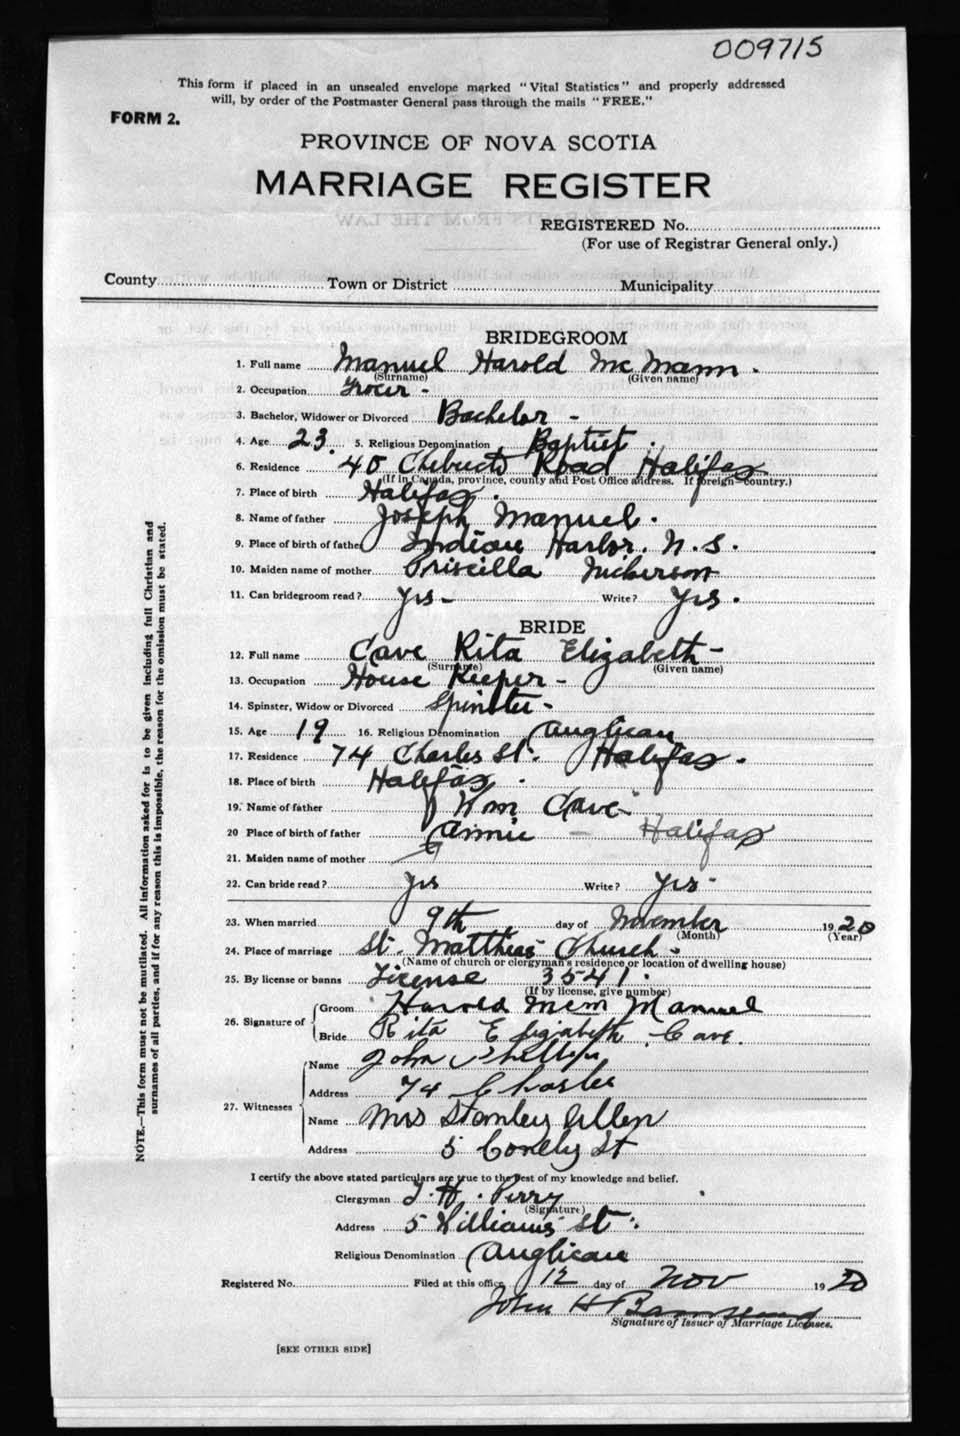 009715
This form if placed in an unsealed envelope marked "Vital Statistics" and properly addressed
will, by order of the Postmaster General pass through the mails "FREE."
FORM 2.
PROVINCE OF NOVA SCOTIA
MARRIAGE REGISTER
REGISTERED No.
(For use of Registrar General only.)
County Town or District Municipality
BRIDEGROOM
1. Full name Manuel Harold McMann.
(Surname) (Given name)
2. Occupation Grocer -
3. Bachelor, Widower or Divorced Bachelor -
4. Age 23. 5. Religious Denomination Baptist.
6. Residence 40 Chebucto Road Halifax
(If in Canada, province, county and Post Office address. If foreign country.)
7. Place of birth Halifax.
8. Name of father Joseph Manuel.
9. Place of birth of father Indian Harbor. N.S.
10. Maiden name of mother Priscilla Nickerson
11. Can bridegroom read? Yes - Write? Yes.
BRIDE
12. Full name Cave Rita Elizabeth -
(Surname) (Given name)
13. Occupation House Keeper -
14. Spinster, Widow or Divorced Spinster -
15. Age 19 16. Religious Denomination Anglican
17. Residence 74 Charles St. Halifax.
18. Place of birth Halifax.
19. Name of father Wm Cave -
20 Place of birth of father Annie - Halifax
21. Maiden name of mother
22. Can bride read? Yes Write? Yes -
23. When married 9th day of November 1920
(Month) (Year)
24. Place of marriage St. Matthias Church -
(Name of church or clergyman's residence or location of dwelling house)
25. By license or banns License 3541.
(If by license, give number)
26. Signature of Groom Harold McM Manuel
Bride Rita Elizabeth Cave.
27. Witnesses Name John Phillips
Address 74 Charles
Name Mrs Stanley Allen
Address 5 St
I certify the above stated particulars are true to the best of my knowledge and belief.
Clergyman T. H. Perry
(Signature)
Address 5 Williams St.
Religious Denomination Anglican
Registered No. Filed at this office 12 day of Nov 1920
John H
Signature of Issuer of Marriage Licenses.
[SEE OTHER SIDE]
NOTE.—This form must not be mutilated. All information asked for is to be given including full Christian and
surnames of all parties, and if for any reason this is impossible, the reason for the omission must be stated.